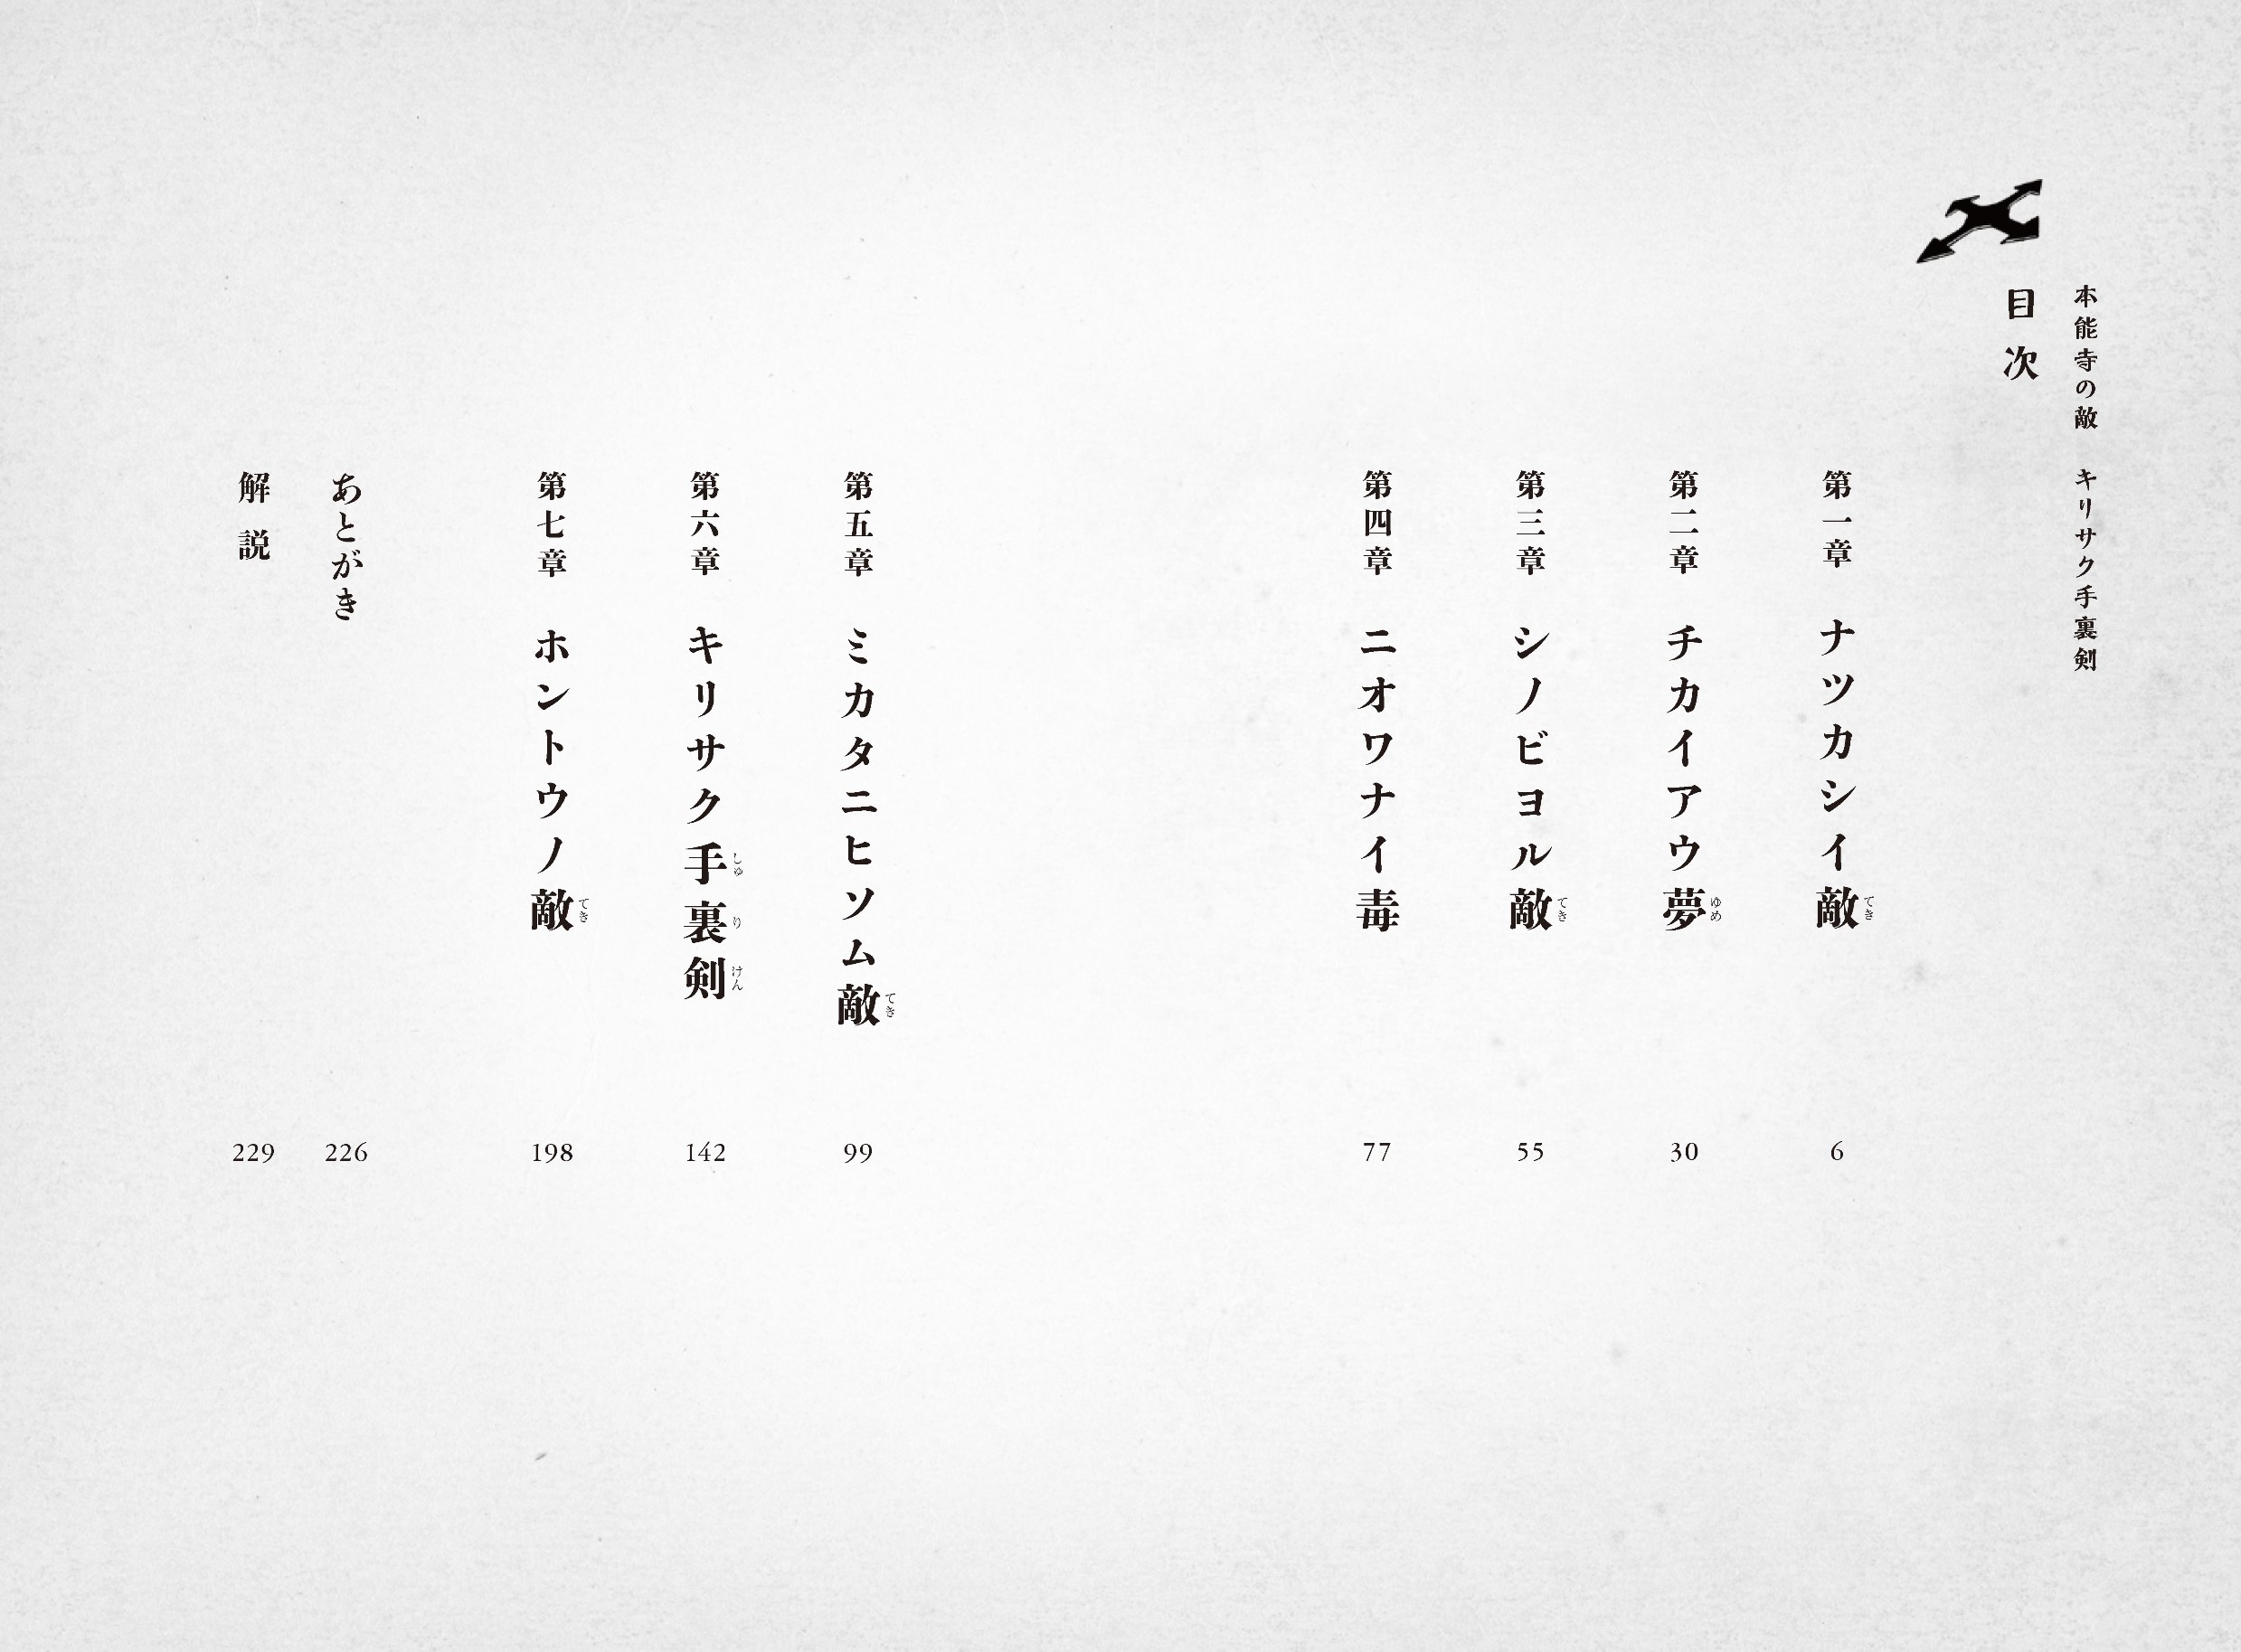 本能寺の敵　キリサク手裏剣
目次
第一章　ナツカシイ敵　6
第二章　チカイアウ夢　30
第三章　シノビヨル敵　55
第四章　ニオワナイ毒　77
第五章　ミカタニヒソム敵　99
第六章　キリサク手裏剣　142
第七章　ホントウノ敵　198
あとがき　226
解説　229